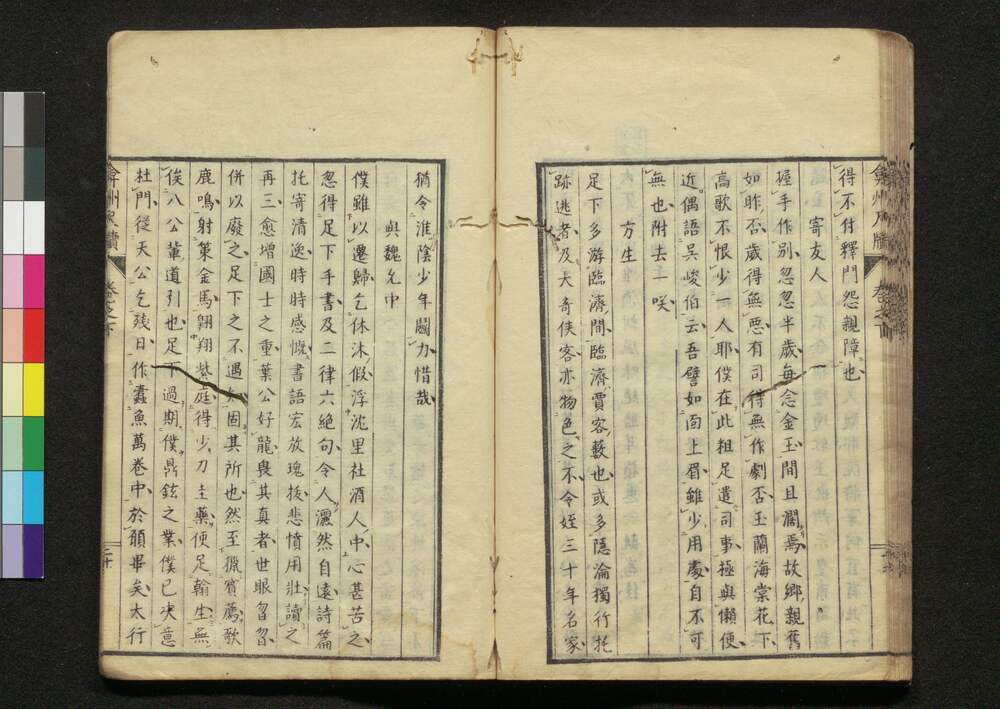 得不付釋門怨親障也
寄友人
握手作別忽忽半歲每念金玉間且濶焉故鄉親舊
如昨否歲得無惡有司得無作劇否玉蘭海棠花下
高歌不恨少一人耶僕在此粗足遣司事極與懶便
近偶語吳峻伯云吾譬如面上眉雖少用處自不可
無也附去一咲
方生
足下多游臨濟間臨濟賈客藪也或多隱淪獨行托
跡逃者及大奇俠客亦物色之不令姪三十年名家
弇州尺牘 卷之下
猶令淮陰少年鬪力惜哉
與魏允中
僕雖以遷歸乞休沐假浮沈里社酒人中心甚苦之
忽得足下手書及二律六絕句令人灑然自遠詩篇
托寄清逸時時感慨書語宏放瑰拔悲憤用壯讀之
再三愈增國士之重葉公好龍畏其真者世眼習習
併以廢之足下之不遇知固其所也然至獵賓薦歌
鹿鳴射策金馬翱翔紫庭得少刀圭藥便足翰生無
俟八公輩道引也足下過期僕鼎鉉之業僕已決意
杜門從天公乞殘日作蠹魚萬卷中於願畢矣太行
弇州尺牘 卷之下
二十